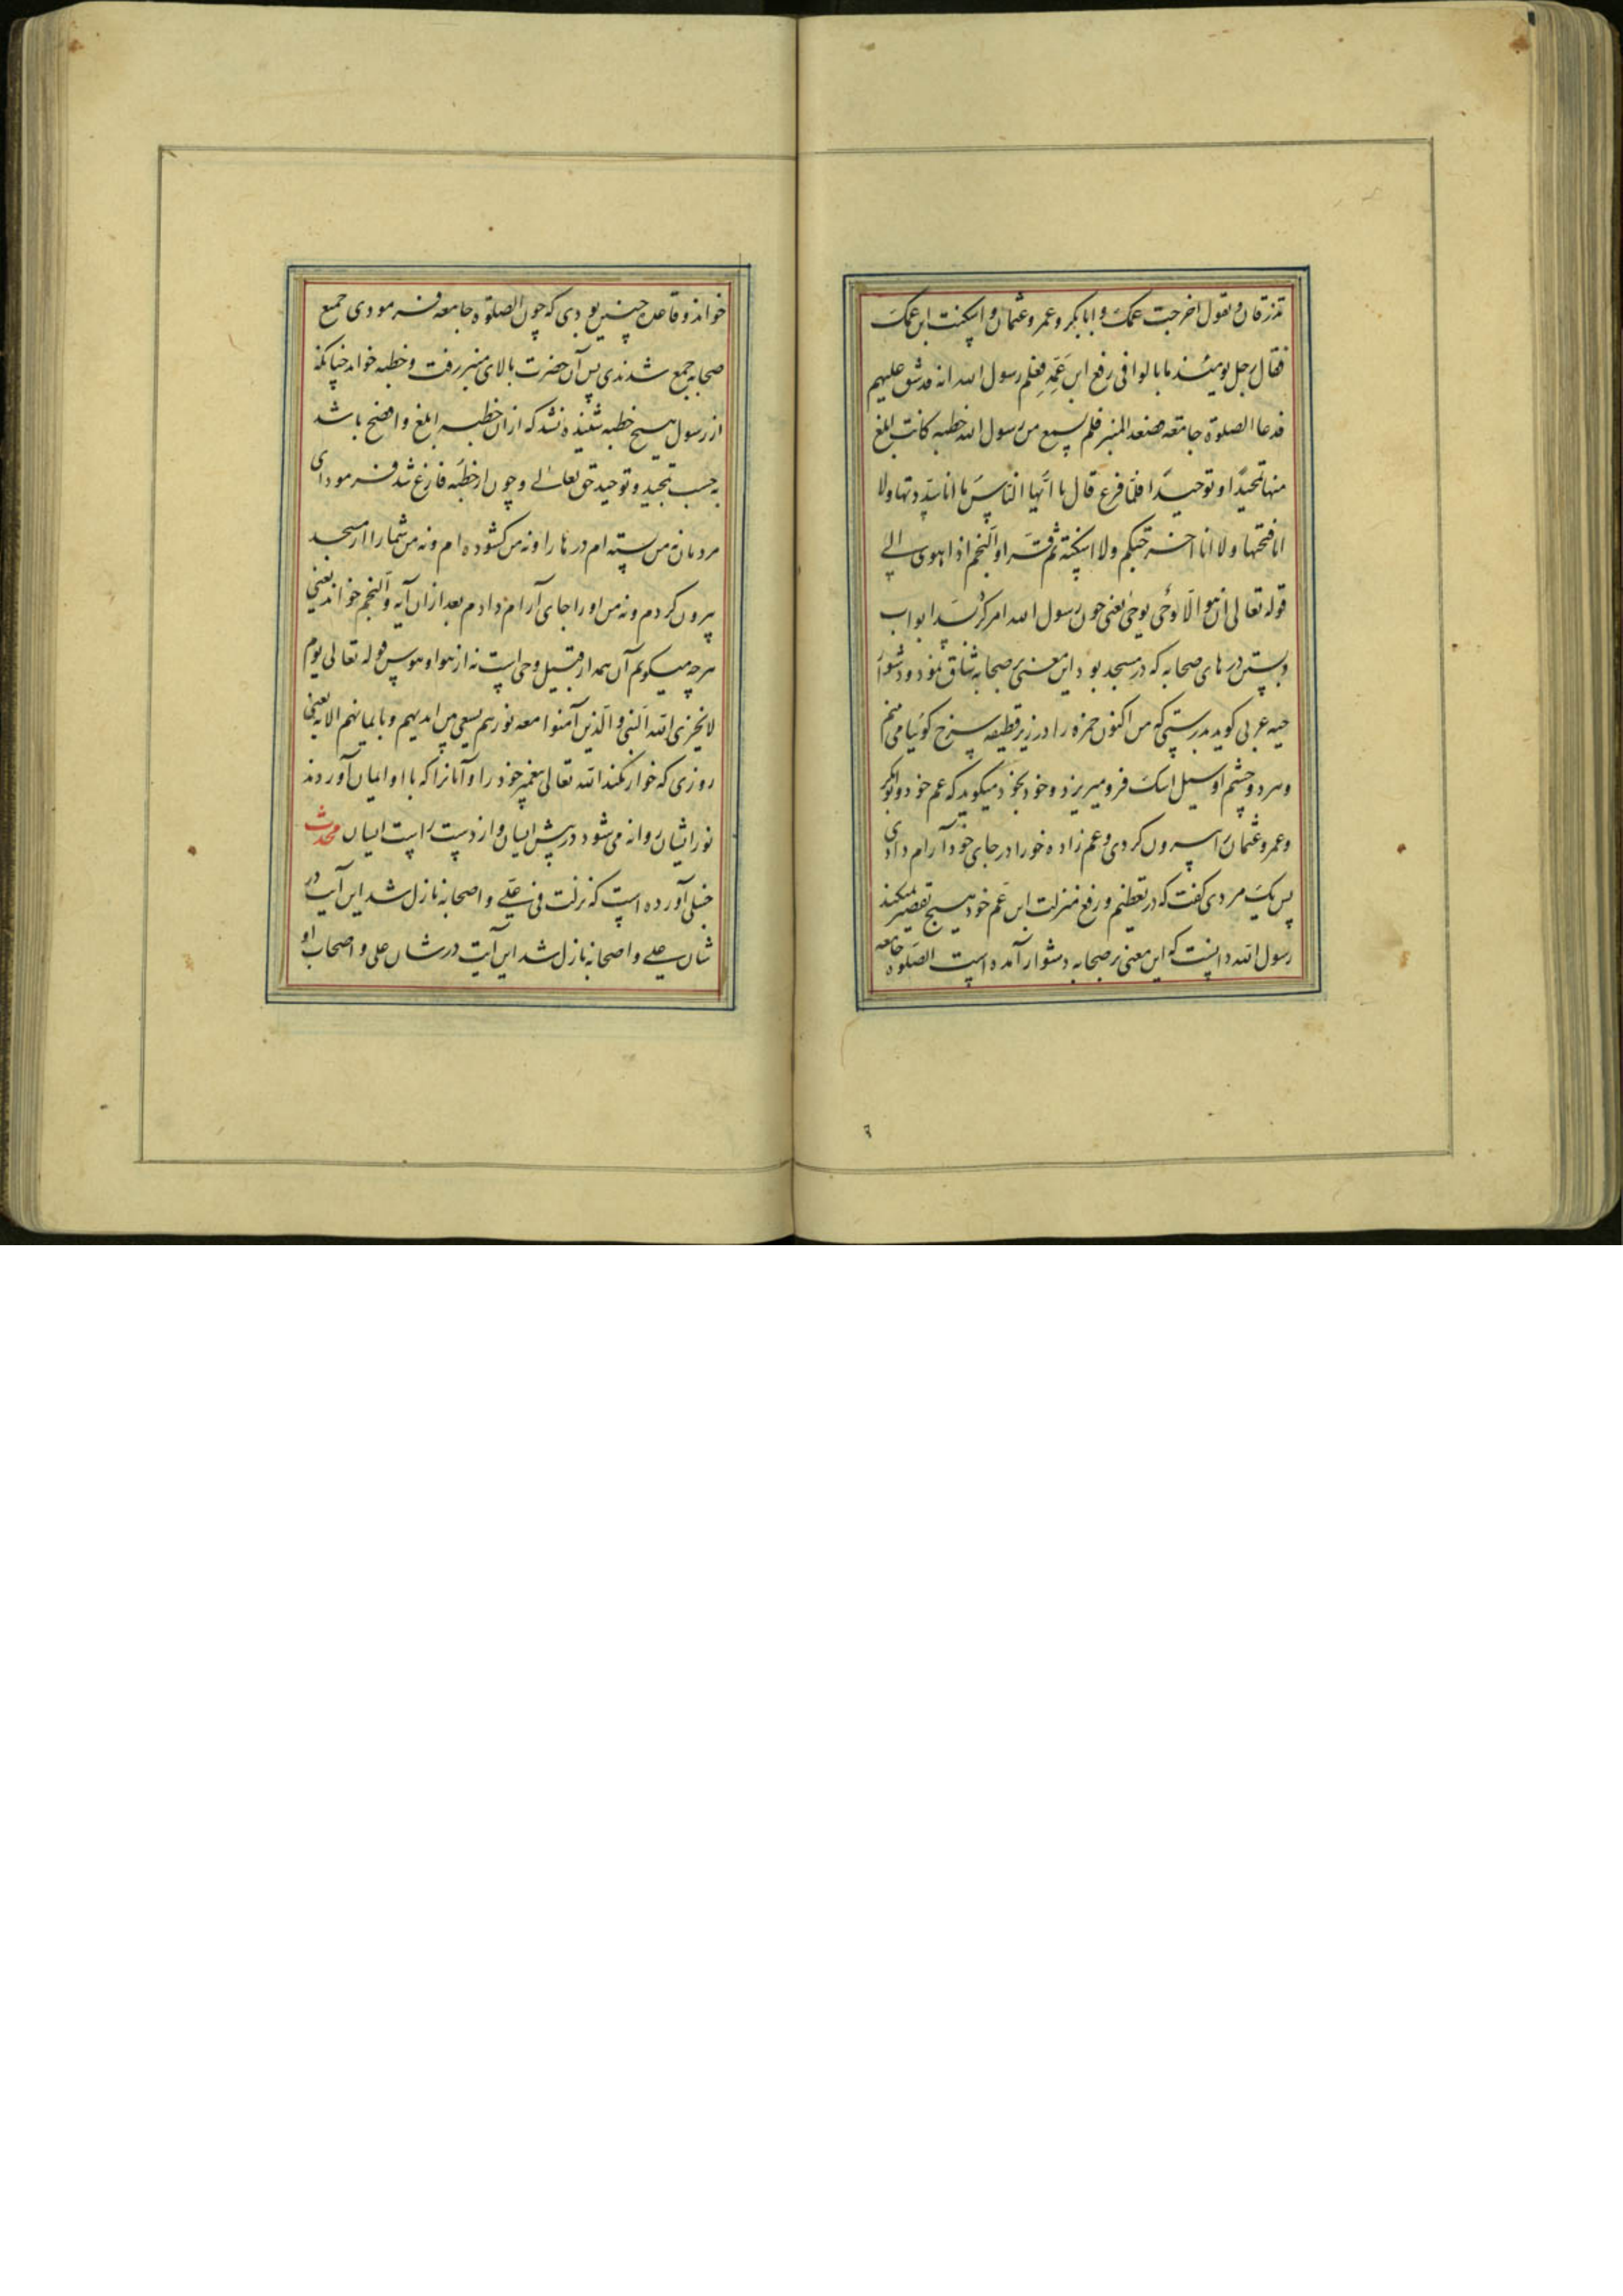 تذرفان و یقول اخرجت عمک و ابابکر و عمر و عثمان و اسکنت ابن عمک
فقال رجل یومئذ ما یالوا فی رفع ابن عمّه فعلم رسول الله انه قد شق علیهم
فدعا الصلوة جامعه فصعد المنبر فلم یسمع من رسول الله خطبه کانت ابلغ
منها تمجیدًا و توحیدًا فلمّا فرغ قال یا ایّها النّاس ما انا سدّدتها ولا
انا فتحتها ولا انا اخرجتکم ولا اسکنته ثم قرا والنجم اذا هوی الی
قوله تعالی ان هو الّا وحی یوحی یعنی چون رسول الله امر کرد بسد ابواب
و بستن در های صحابه که در مسجد بود این معنی بر صحابه شاق نمود و دشوار
حبه عربی کوید بدرستی که من اکنون حمزه را در زیر قطیفه سرخ کوئیا می بینم
و هر دو چشم او سیل اشک فرو میریزد و خود بخود میکوید که عم خود و ابوبکر
و عمر و عثمان را بیرون کردی و عم زاده خود را در جای خود آرام دادی
پس یک مردی کفت که در تعظیم و رفع منزلت ابن عم خود هیچ تقصیر نمیکند
رسول الله دانست که این معنی بر صحابه دشوار آمده است الصلوه جامعه
۶
خواند و قاعده چنین بودی که چون الصلوة جامعه فرمودی جمیع
صحابه جمع شدندی پس آن حضرت بالای منبر رفت و خطبه خواند چنانکه
از رسول هیچ خطبه شنیده نشد که از ان خطبه ابلغ و افصح باشد
به حسب تمجید و توحید حق تعالی و چون از خطبه فارغ شد فرمود ای
مردمان نه من بسته ام در ها را و نه من کشوده ام و نه من شما را از مسجد
بیرون کردم و نه من او را جای آرام دادم بعد از ان آیه والنجم خواند یعنی
هرچه میکویم آن همه از قبیل وحی است نه از هوا و هوس قوله تعالی یوم
لا یخزی الله النبی و الذین آمنوا معه نورهم یسعی بین ایدیهم و بایمانهم الایه یعنی
روزی که خوار نکند الله تعالی پیغمبر خود را و آنانرا که با او ایمان آوردند
نور ایشان روانه می شود در پیش ایشان و از دست راست ایشان محدث
حنبلی آورده است که نزلت فی علی و اصحابه نازل شد این آیت در
شان علی و اصحابه نازل شد این آیت در شان علی و اصحاب او